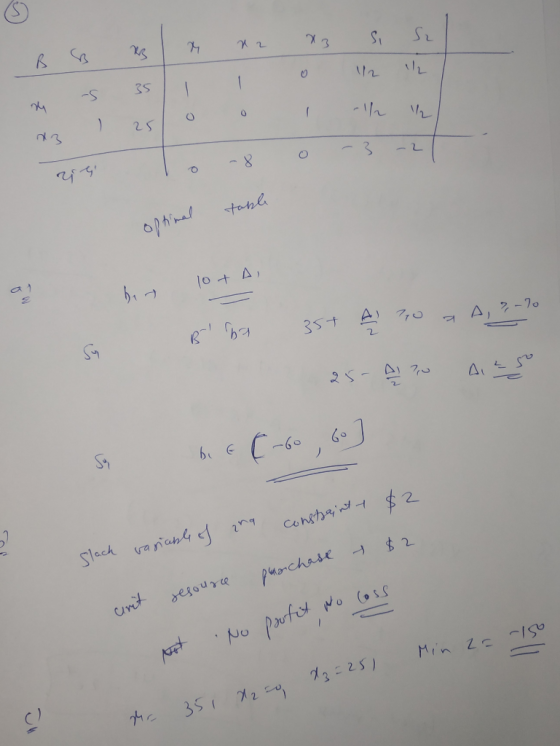 5
B CB xB x1 x2 x3 S1 S2
x1 -5 35 1 1 0 1/2 1/2
x3 1 25 0 0 1 -1/2 1/2
zj-cj 0 -8 0 -3 -2
optimal table
a) b1 → 10 + Δ1
So B⁻¹b → 35 + Δ1/2 ≥ 0 ⇒ Δ1 ≥ -70
25 - Δ1/2 ≥ 0 Δ1 ≤ 50
So b1 ∈ [-60, 60]
b) Slack variable of 2nd constraint → $2
unit resource purchase → $2
No profit, No loss
c) x1 = 35, x2 = 0, x3 = 25, Min Z = -150